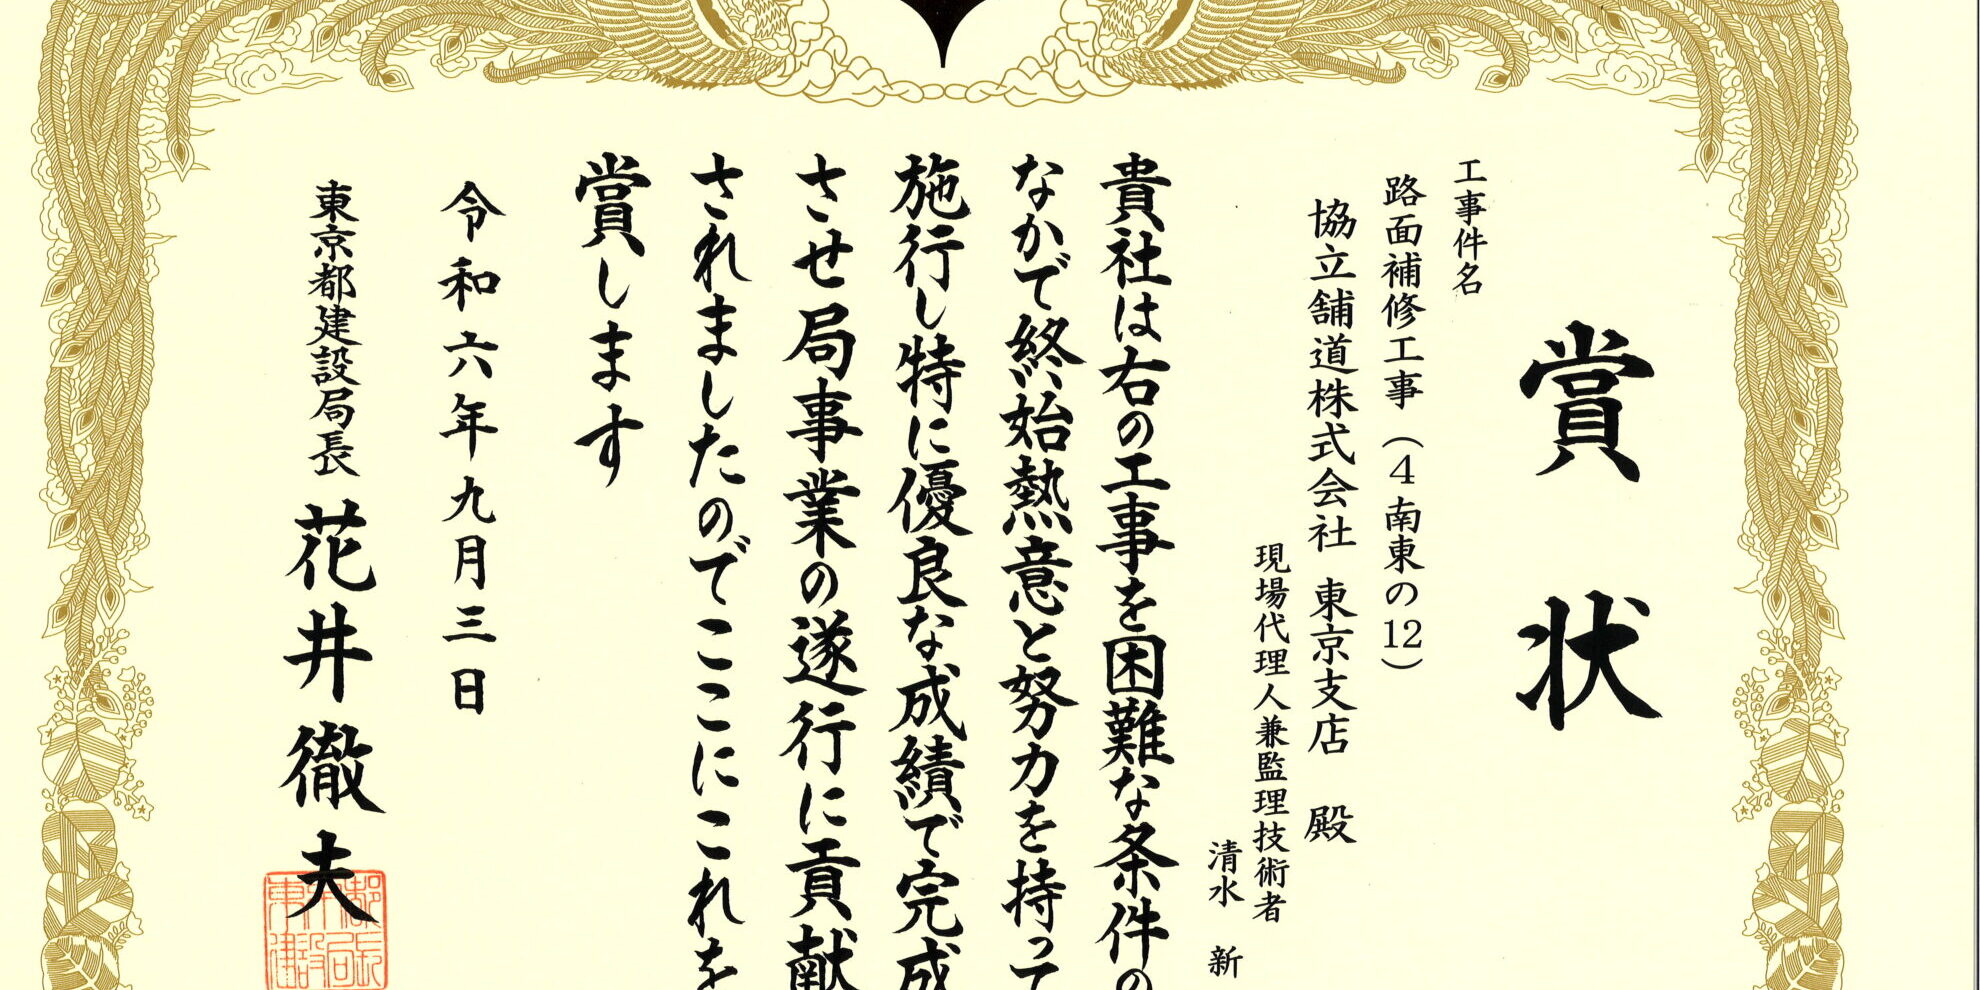 賞状
工事件名
路面補修工事（4南東の12）
協立舗道株式会社 東京支店 殿
現場代理人兼監理技術者
清水 新
貴社は右の工事を困難な条件の
なかで終始熱意と努力を持って
施行し特に優良な成績で完成
させ局事業の遂行に貢献
されましたのでここにこれを
賞します
令和六年九月三日
東京都建設局長 花井徹夫